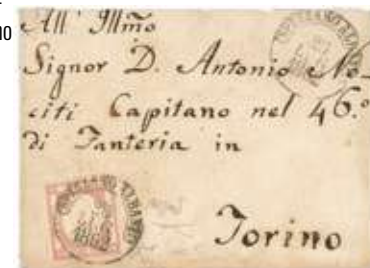 no
All' Illmo
Signor D. Antonio No-
citi Capitano nel 46.º
di Fanteria in
Torino
CORIGLIANO